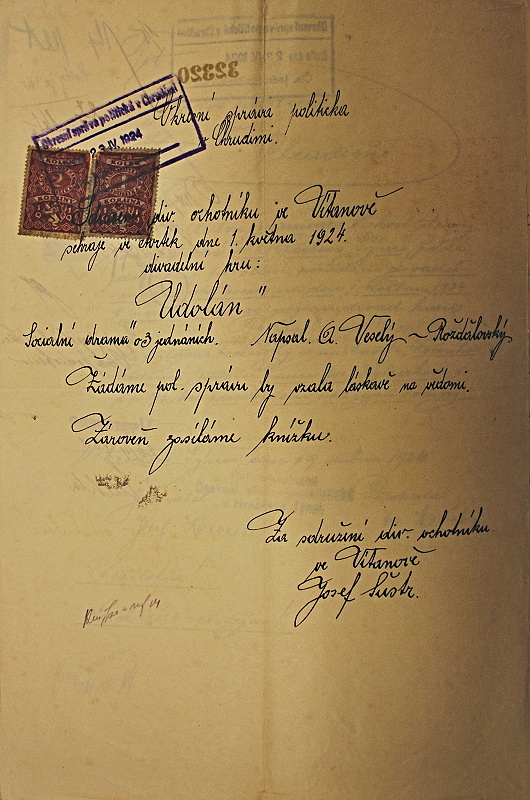 Okresní správa politická v Chrudimi
23.IV.1924
Okresní správa politická
v Chrudimi.
KOLEK
KOLEK
KORUNA
Sdružení div. ochotníků ve Vítanově
sehraje ve čtvrtek dne 1. května 1924.
divadelní hru:
"Udolán"
Sociální drama" o 3 jednáních. Napsal A. Veselý - Rožďálovský
Žádáme pol. správu by vzala laskavě na vědomí.
Zároveň zasíláme knížku.
Za sdružení div. ochotníků
ve Vítanově
Josef Šustr.
32320